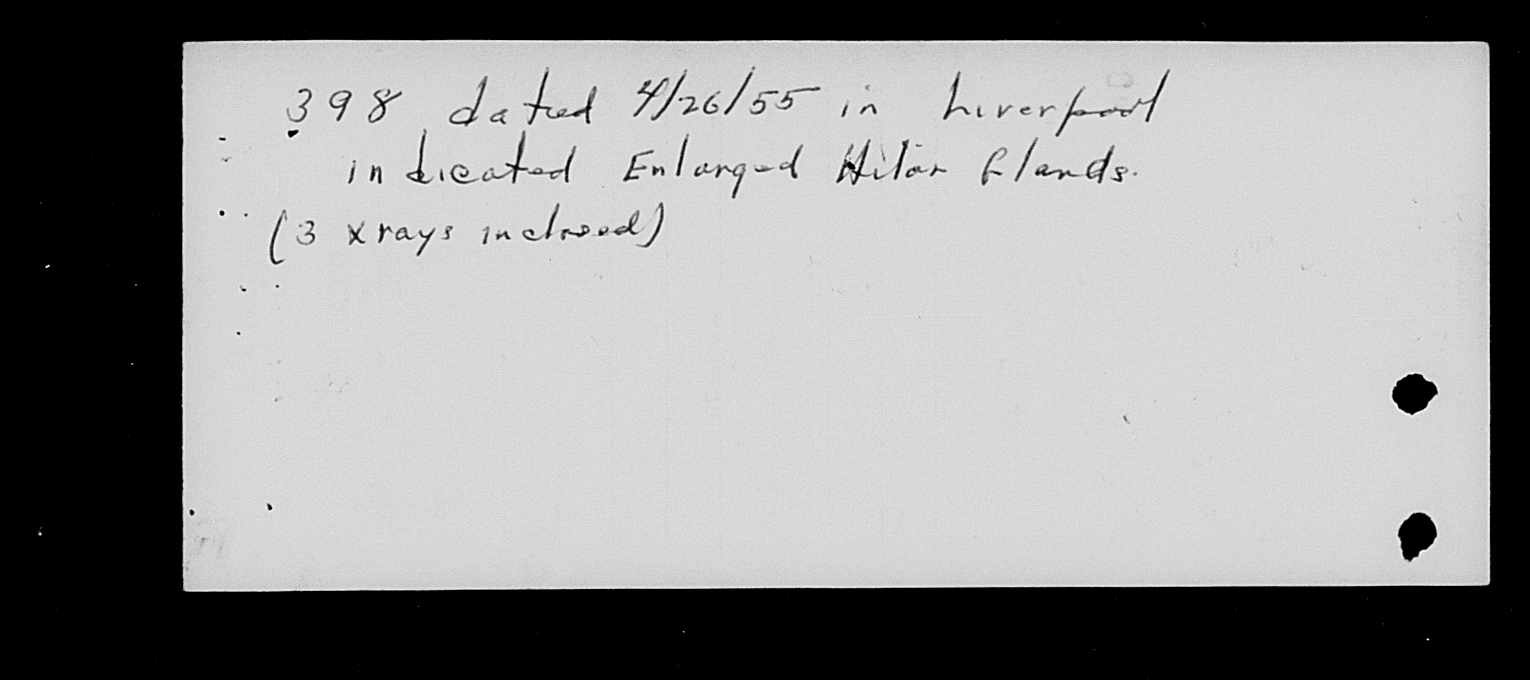 398 dated 4/26/55 in Liverpool
indicated Enlarged Hilar Glands.
(3 xrays inclosed)